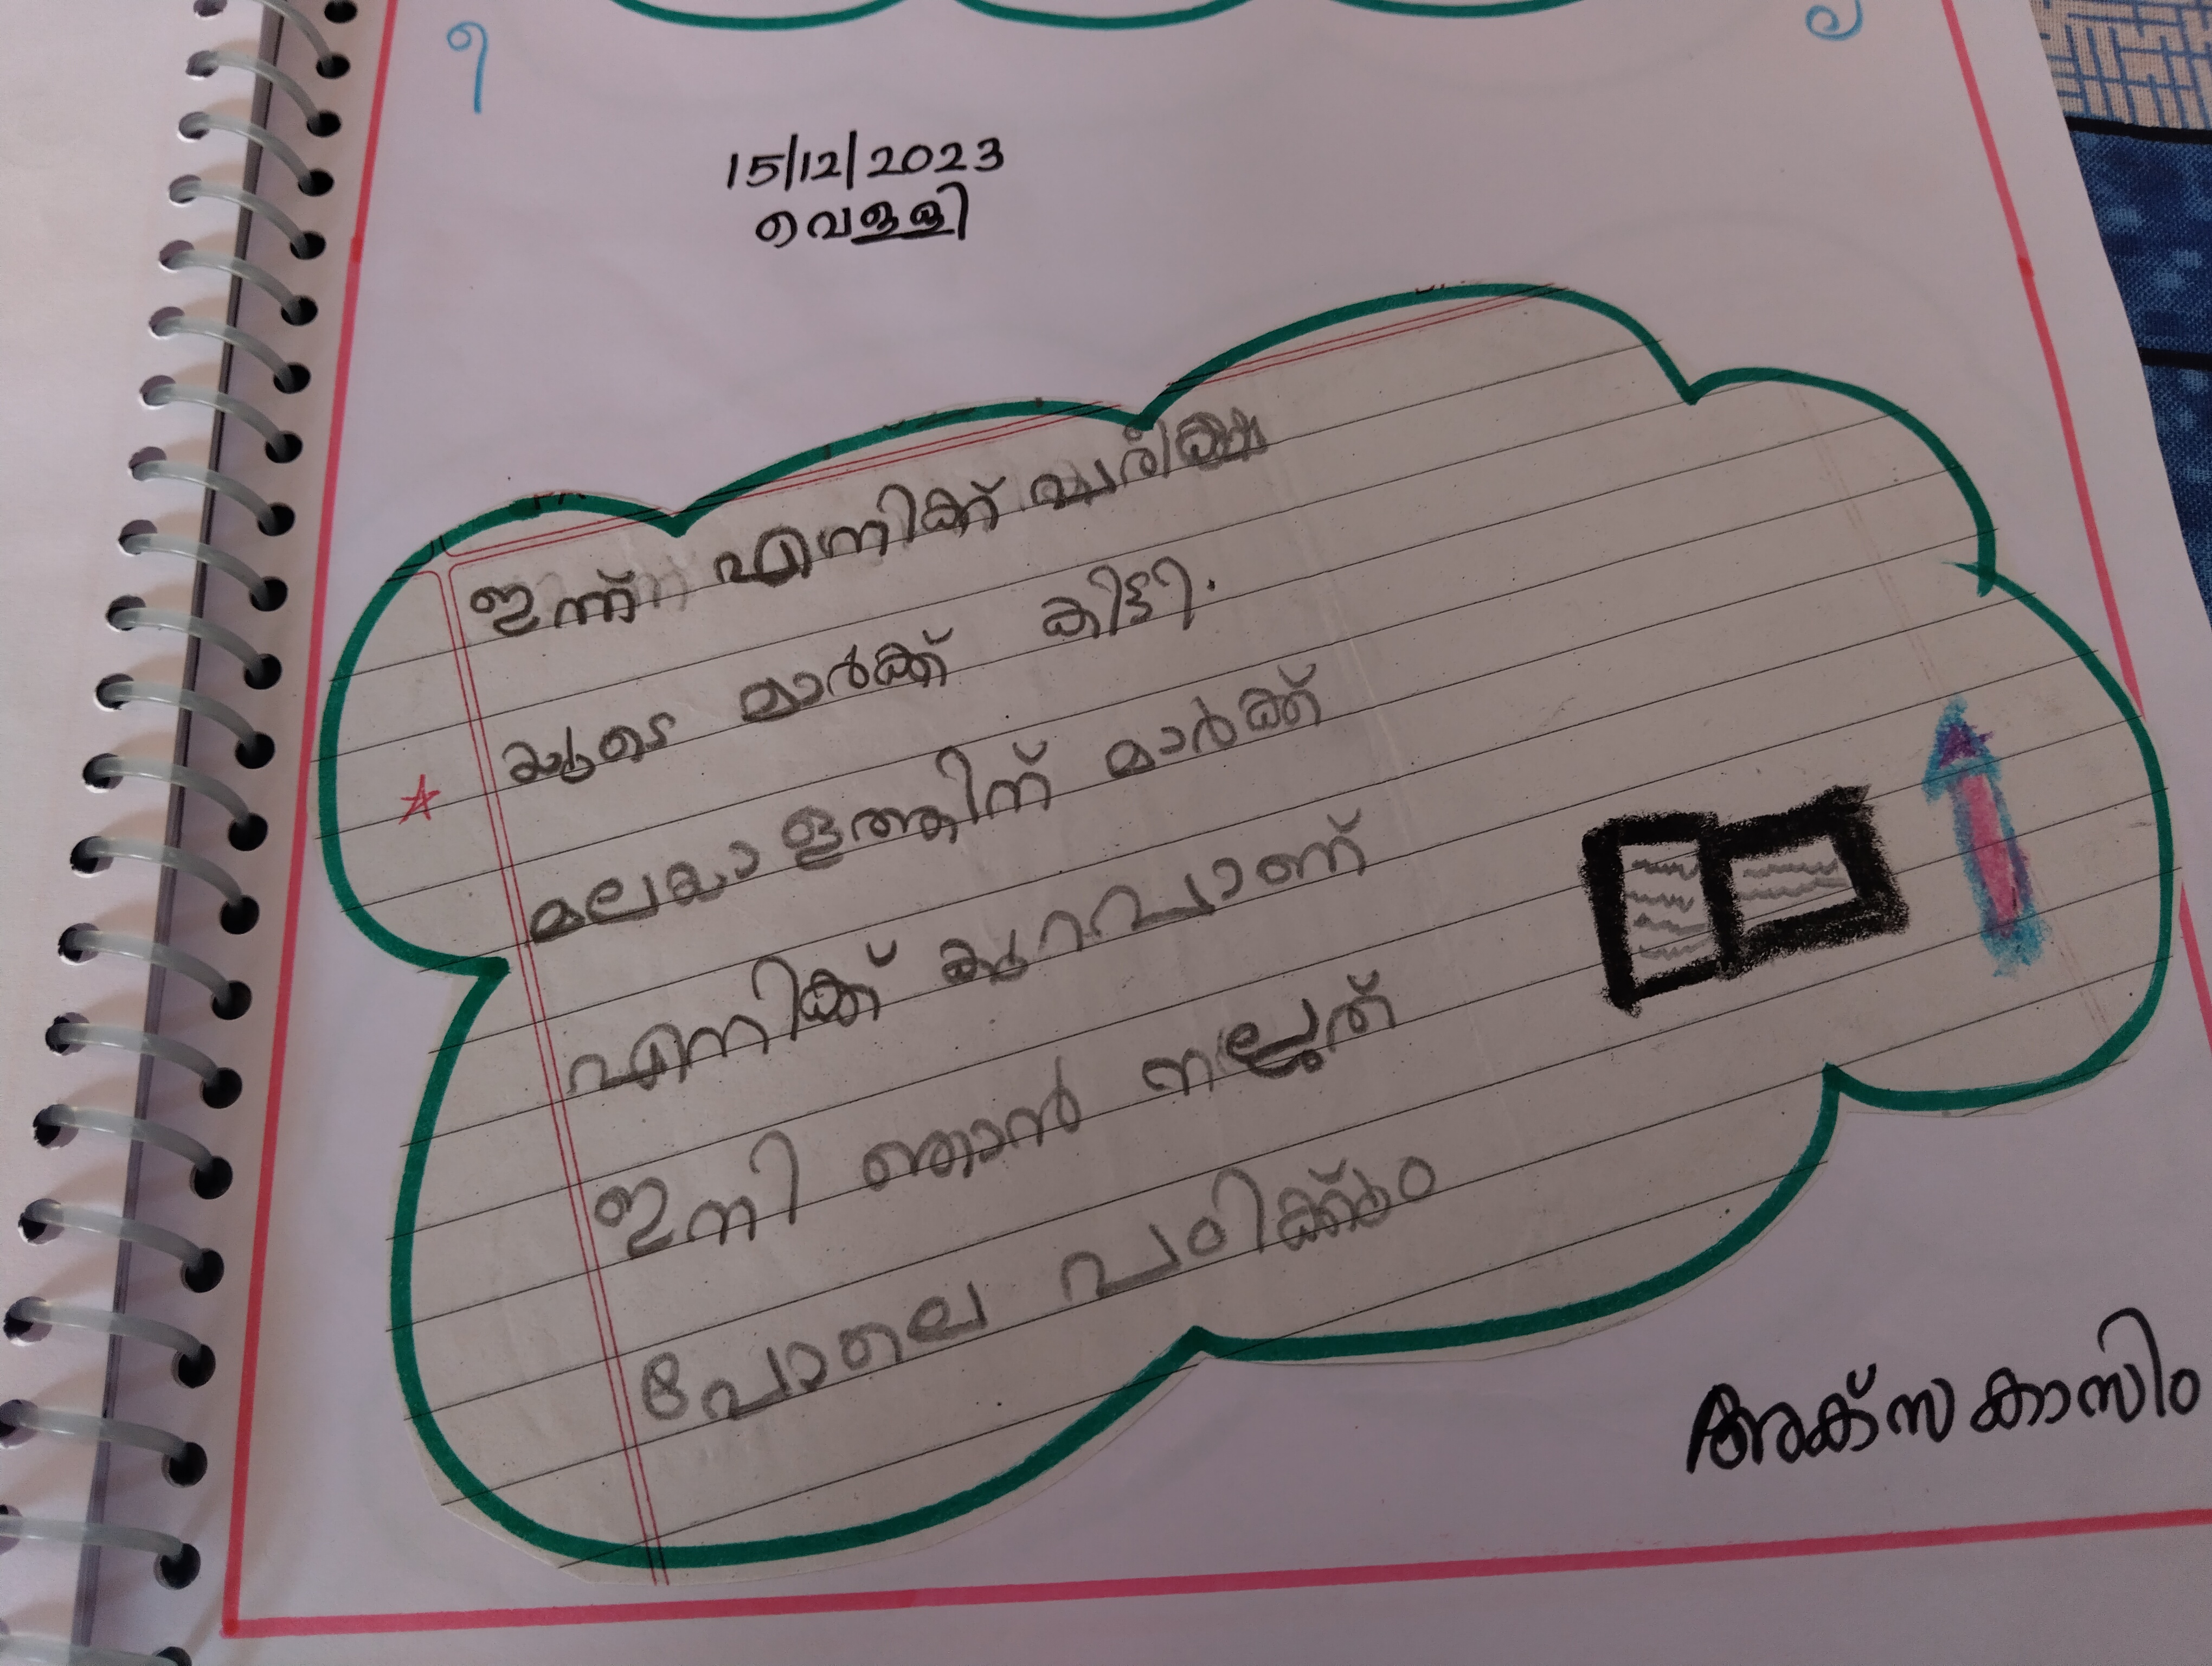 15/12/2023
വെള്ളി
ഇന്ന് എനിക്ക് പരീക്ഷ
യുടെ മാർക്ക് കിട്ടി.
മലയാളത്തിന് മാർക്ക്
എനിക്ക് കുറവാണ്
ഇനി ഞാൻ നല്ലത്
പോലെ പഠിക്കും
അക്സ കാസിം